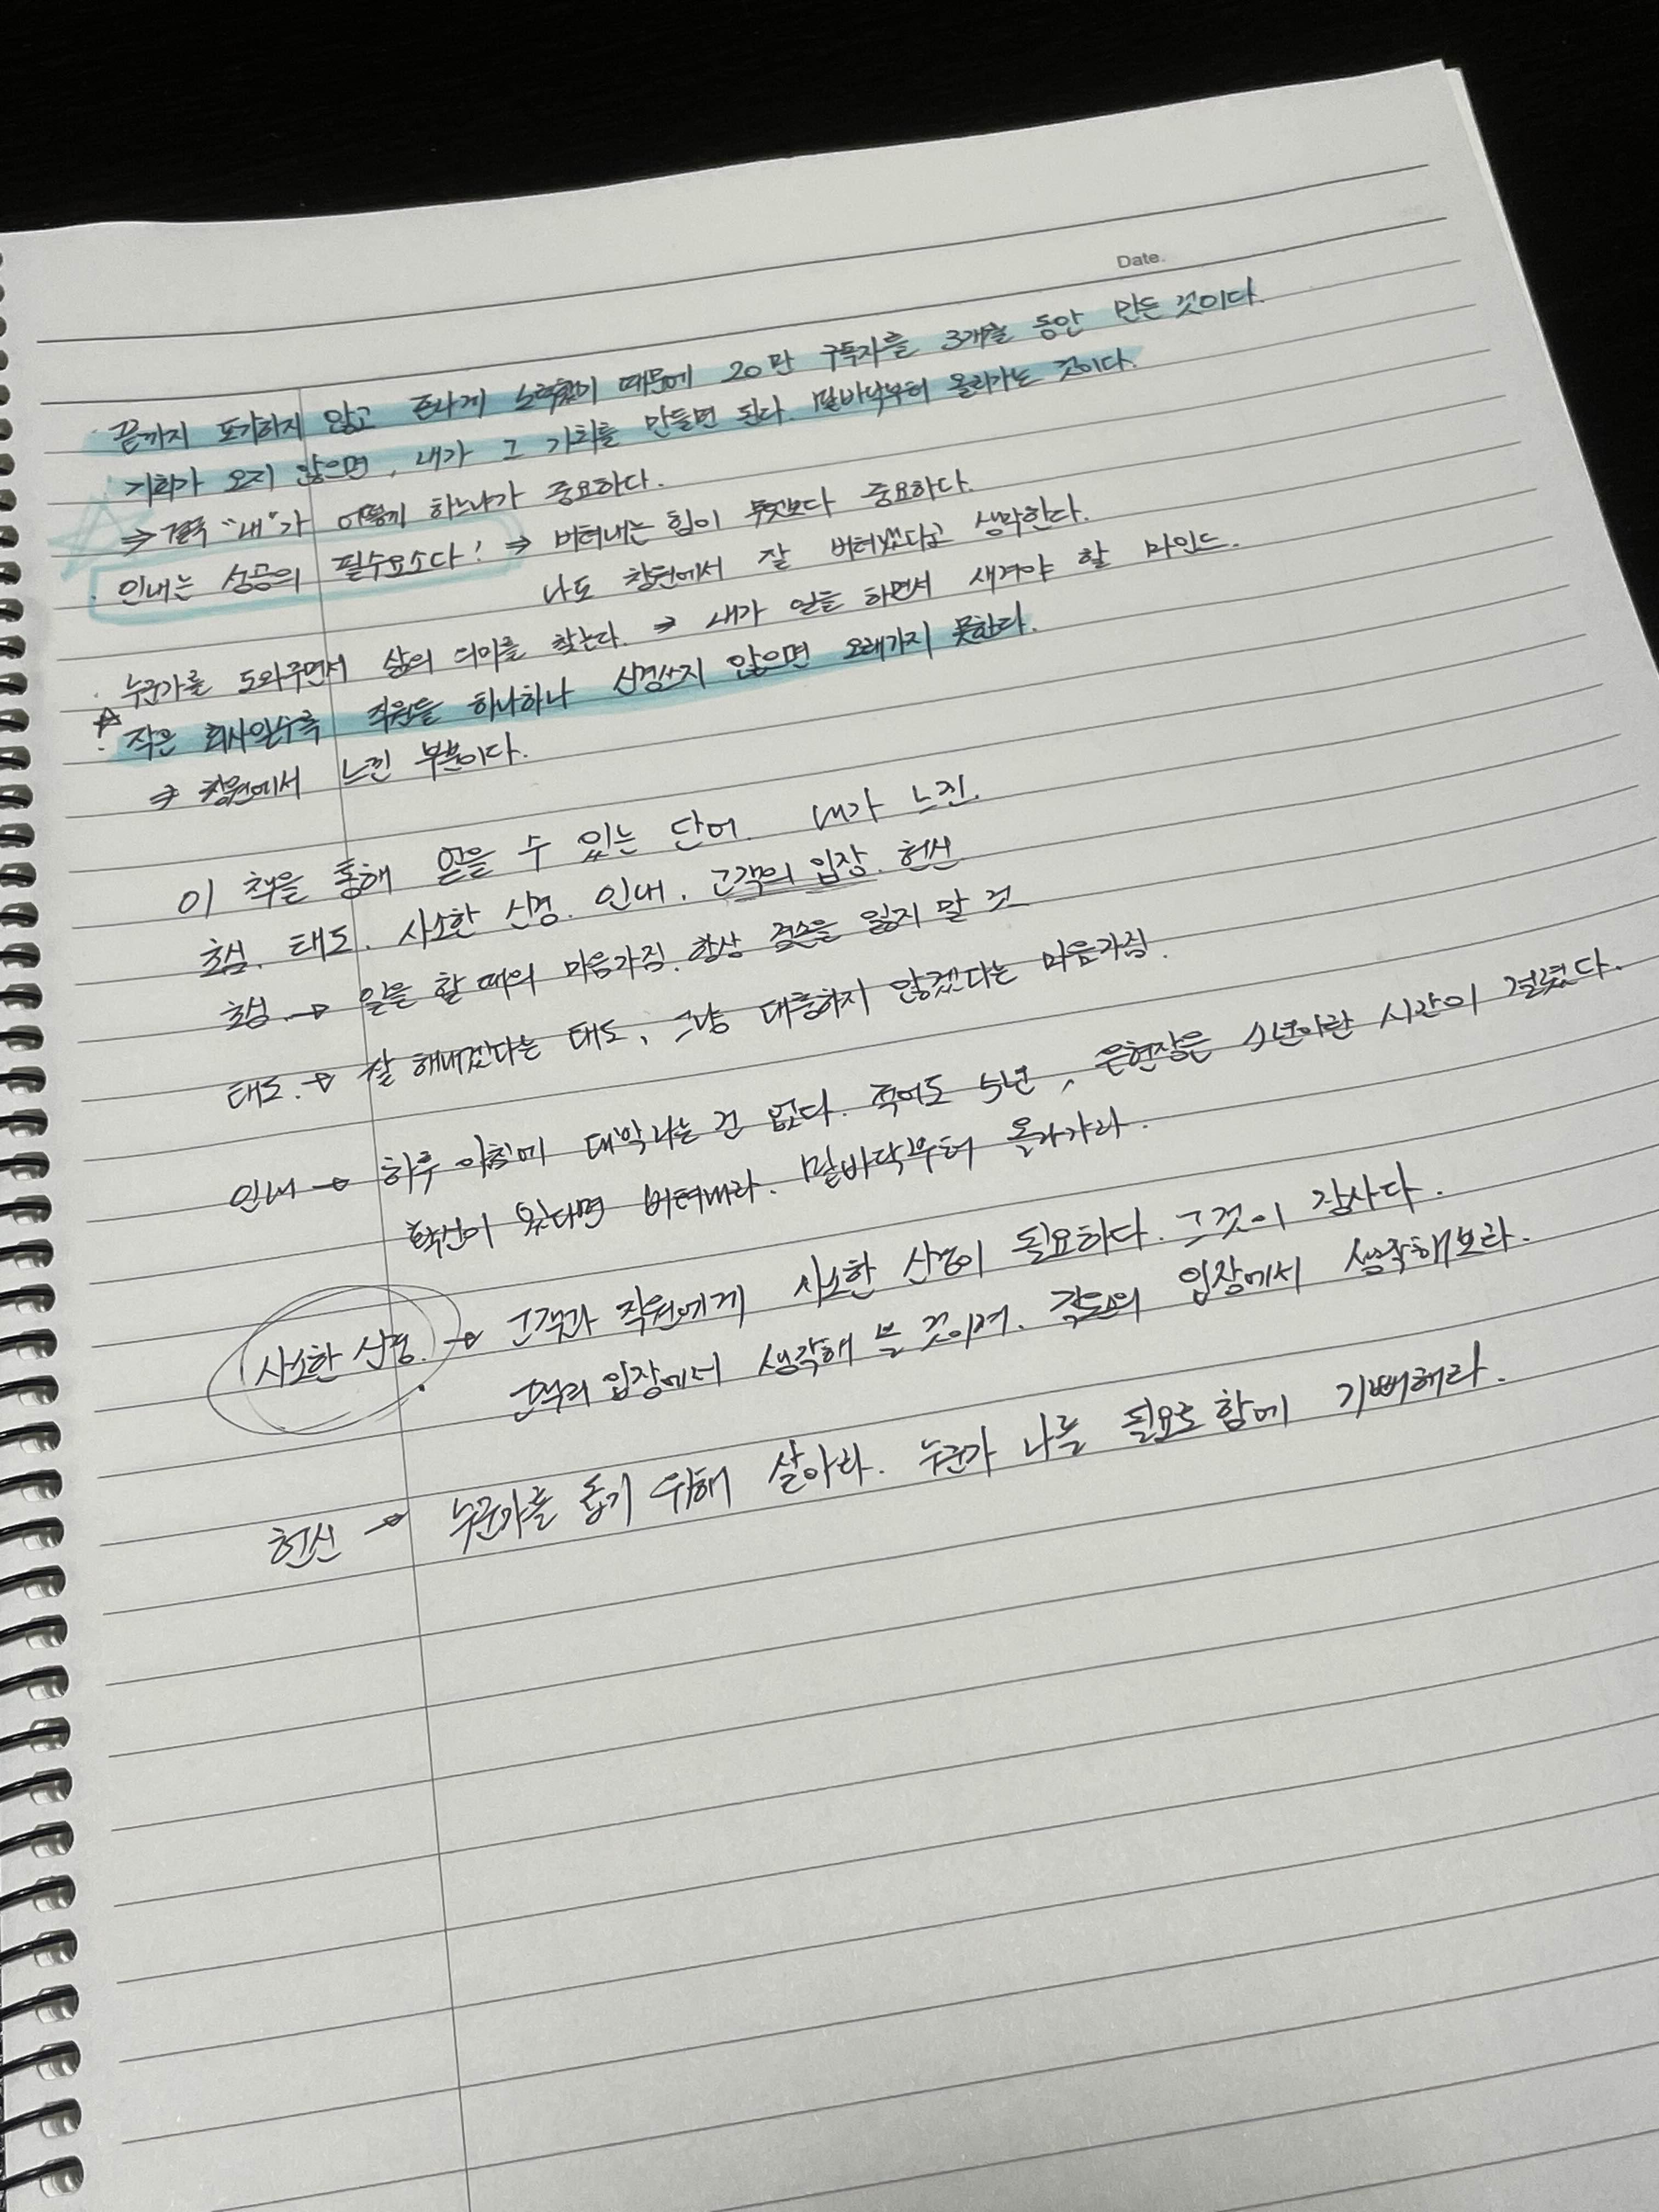 Date.
· 끝까지 포기하지 않고 존나게 노력했기 때문에 20만 구독자를 3개월 동안 만든 것이다.
기회가 오지 않으면, 내가 그 기회를 만들면 된다. 밑바닥부터 올라가는 것이다.
⇒ 결국 "내"가 어떻게 하느냐가 중요하다.
· 인내는 성공의 필수요소다! ⇒ 버텨내는 힘이 무엇보다 중요하다.
나도 창원에서 잘 버텨냈다고 생각한다.
· 누군가를 도와주면서 삶의 의미를 찾는다. ⇒ 내가 일을 하면서 새겨야 할 마인드.
☆ 작은 회사일수록 직원들 하나하나 신경쓰지 않으면 오래가지 못한다.
⇒ 창원에서 느낀 부분이다.
이 책을 통해 얻을 수 있는 단어. 내가 느낀.
초심. 태도. 사소한 신경. 인내. 고객의 입장. 헌신
초심 → 일을 할 때의 마음가짐. 항상 겸손을 잃지 말 것
태도. → 잘 해내겠다는 태도, 그냥 대충하지 않겠다는 마음가짐.
인내 → 하루 아침에 대박나는 건 없다. 적어도 5년, 은현장은 수년이란 시간이 걸렸다.
확신이 있다면 버텨내라. 밑바닥부터 올라가라.
사소한 신경. → 고객과 직원에게 사소한 신경이 필요하다. 그것이 감사다.
고객의 입장에서 생각해 본 것이며. 각도의 입장에서 생각해보라.
헌신 → 누군가를 돕기 위해 살아라. 누군가 나를 필요로 함에 기뻐해라.